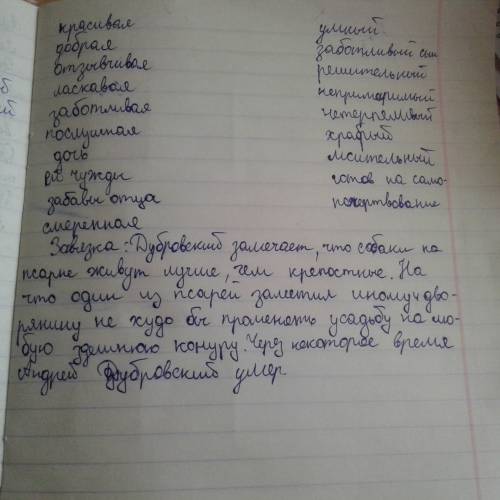 красивая
добрая
отзывчивая
ласковая
заботливая
послушная
дочь
ей чужды
забавы отца
смеренная
умный
заботливый сын
решительный
непримиримый
нетерпеливый
храбрый
мстительный
готов на само-
пожертвование
Завязка: Дубровский замечает, что собаки на
псарне живут лучше, чем крепостные. На
что один из псарей заметил иному дво-
рянину не худо бы променять усадьбу на лю-
бую здешнюю конуру. Через некоторое время
Андрей Дубровский умер